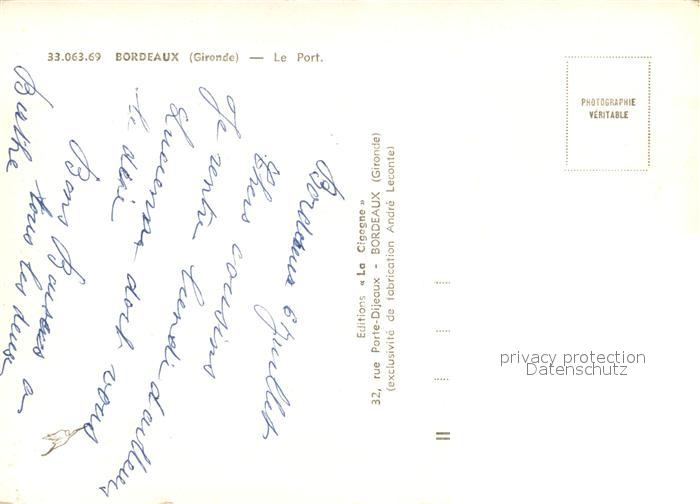 33.063.69 BORDEAUX (Gironde) — Le Port.
PHOTOGRAPHIE
VÉRITABLE
Bordeaux 6 Juillet
Chers cousins
Je rentre lundi d'ailleurs
dont vous
Bons Baisers
tous les deux
Editions « La Cigogne »
32, rue Porte-Dijeaux - BORDEAUX (Gironde)
(exclusivité de fabrication André Leconte)
privacy protection
Datenschutz